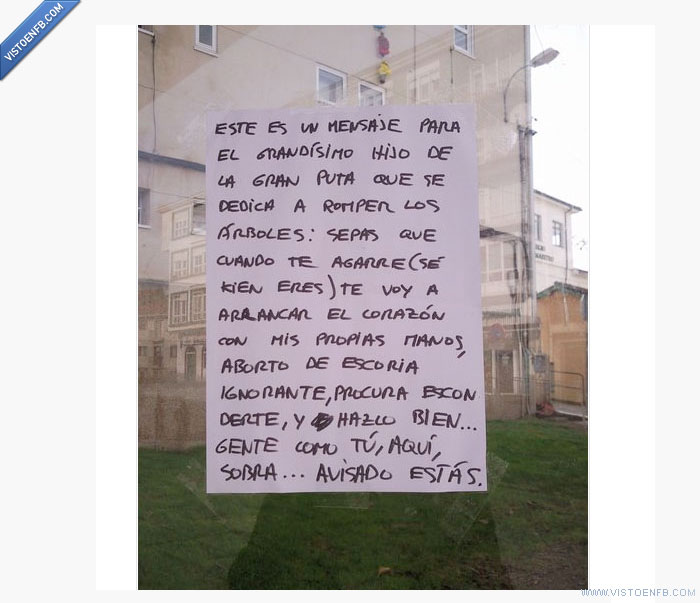 VISTOENFB.COM
ESTE ES UN MENSAJE PARA
EL GRANDÍSIMO HIJO DE
LA GRAN PUTA QUE SE
DEDICA A ROMPER LOS
ÁRBOLES: SEPAS QUE
CUANDO TE AGARRE (SÉ
KIEN ERES) TE VOY A
ARRANCAR EL CORAZÓN
CON MIS PROPIAS MANOS,
ABORTO DE ESCORIA
IGNORANTE, PROCURA ESCON
DERTE, Y HAZLO BIEN...
GENTE COMO TÚ, AQUÍ,
SOBRA... AVISADO ESTÁS.
WWW.VISTOENFB.COM